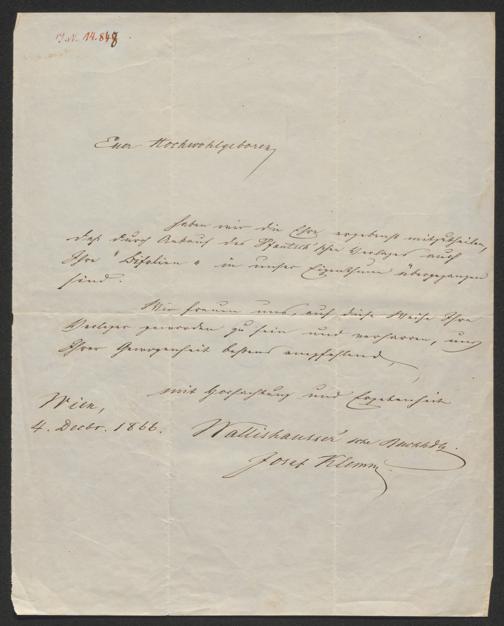 J.N. 14.848
Euer Hochwohlgeboren,
haben wir die Ehre ergebenst mitzutheilen,
daß durch Ankauf des Pfautsch'schen Verlages auch
Ihre "Zifolien" in unser Eigenthum übergegangen
sind.
Wir freuen uns, auf diese Weise Ihre
Verleger geworden zu sein und verharren, uns
Ihrer Gewogenheit bestens empfehlend,
mit Hochachtung und Ergebenheit
Wien,
4. Decbr. 1866.
Wallishausser'sche Buchhdlg.
Josef Klemm